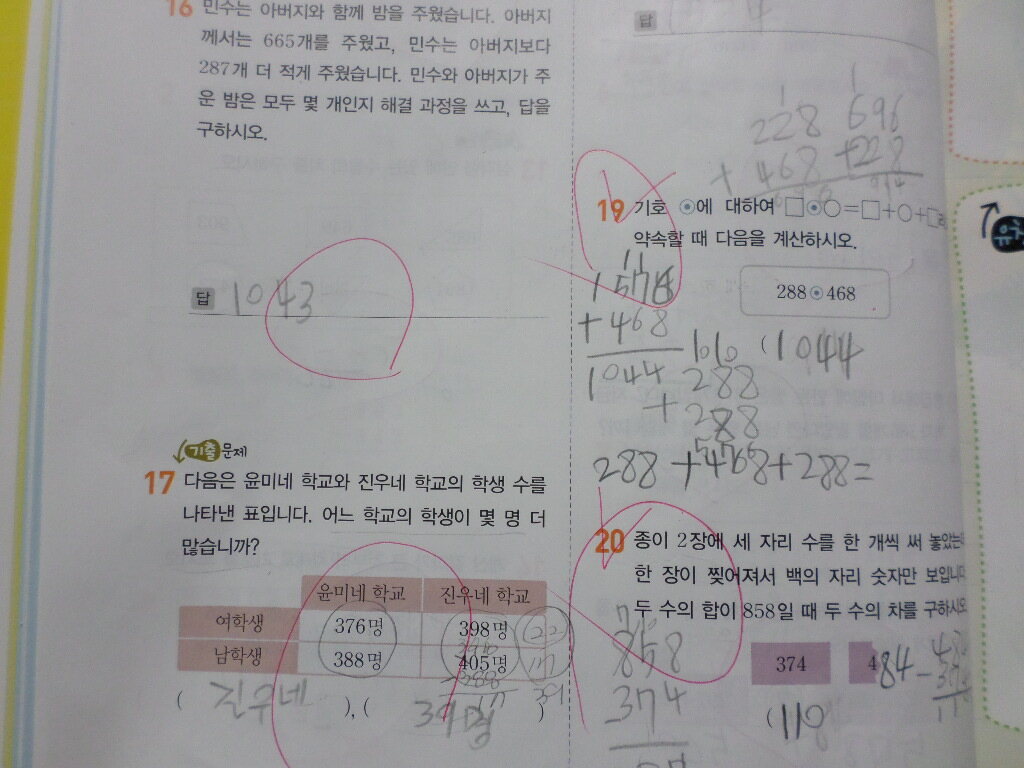 16 민수는 아버지와 함께 밤을 주웠습니다. 아버지
께서는 665개를 주웠고, 민수는 아버지보다
287개 더 적게 주웠습니다. 민수와 아버지가 주
운 밤은 모두 몇 개인지 해결 과정을 쓰고, 답을
구하시오.
답 1043
기출 문제
17 다음은 윤미네 학교와 진우네 학교의 학생 수를
나타낸 표입니다. 어느 학교의 학생이 몇 명 더
많습니까?
윤미네 학교 진우네 학교
여학생 376명 398명 22
남학생 388명 405명 17
( 진우네 ), ( 39명 )
답
228 696
+ 468 + 228
19 기호 ⊙에 대하여 □⊙○=□+○+□
약속할 때 다음을 계산하시오.
288⊙468
+ 468
1044
(1044
288
+ 288
288 + 468 + 288 =
20 종이 2장에 세 자리 수를 한 개씩 써 놓았는데
한 장이 찢어져서 백의 자리 숫자만 보입니다.
두 수의 합이 858일 때 두 수의 차를 구하시오.
374 4 84 -
858
374
(110